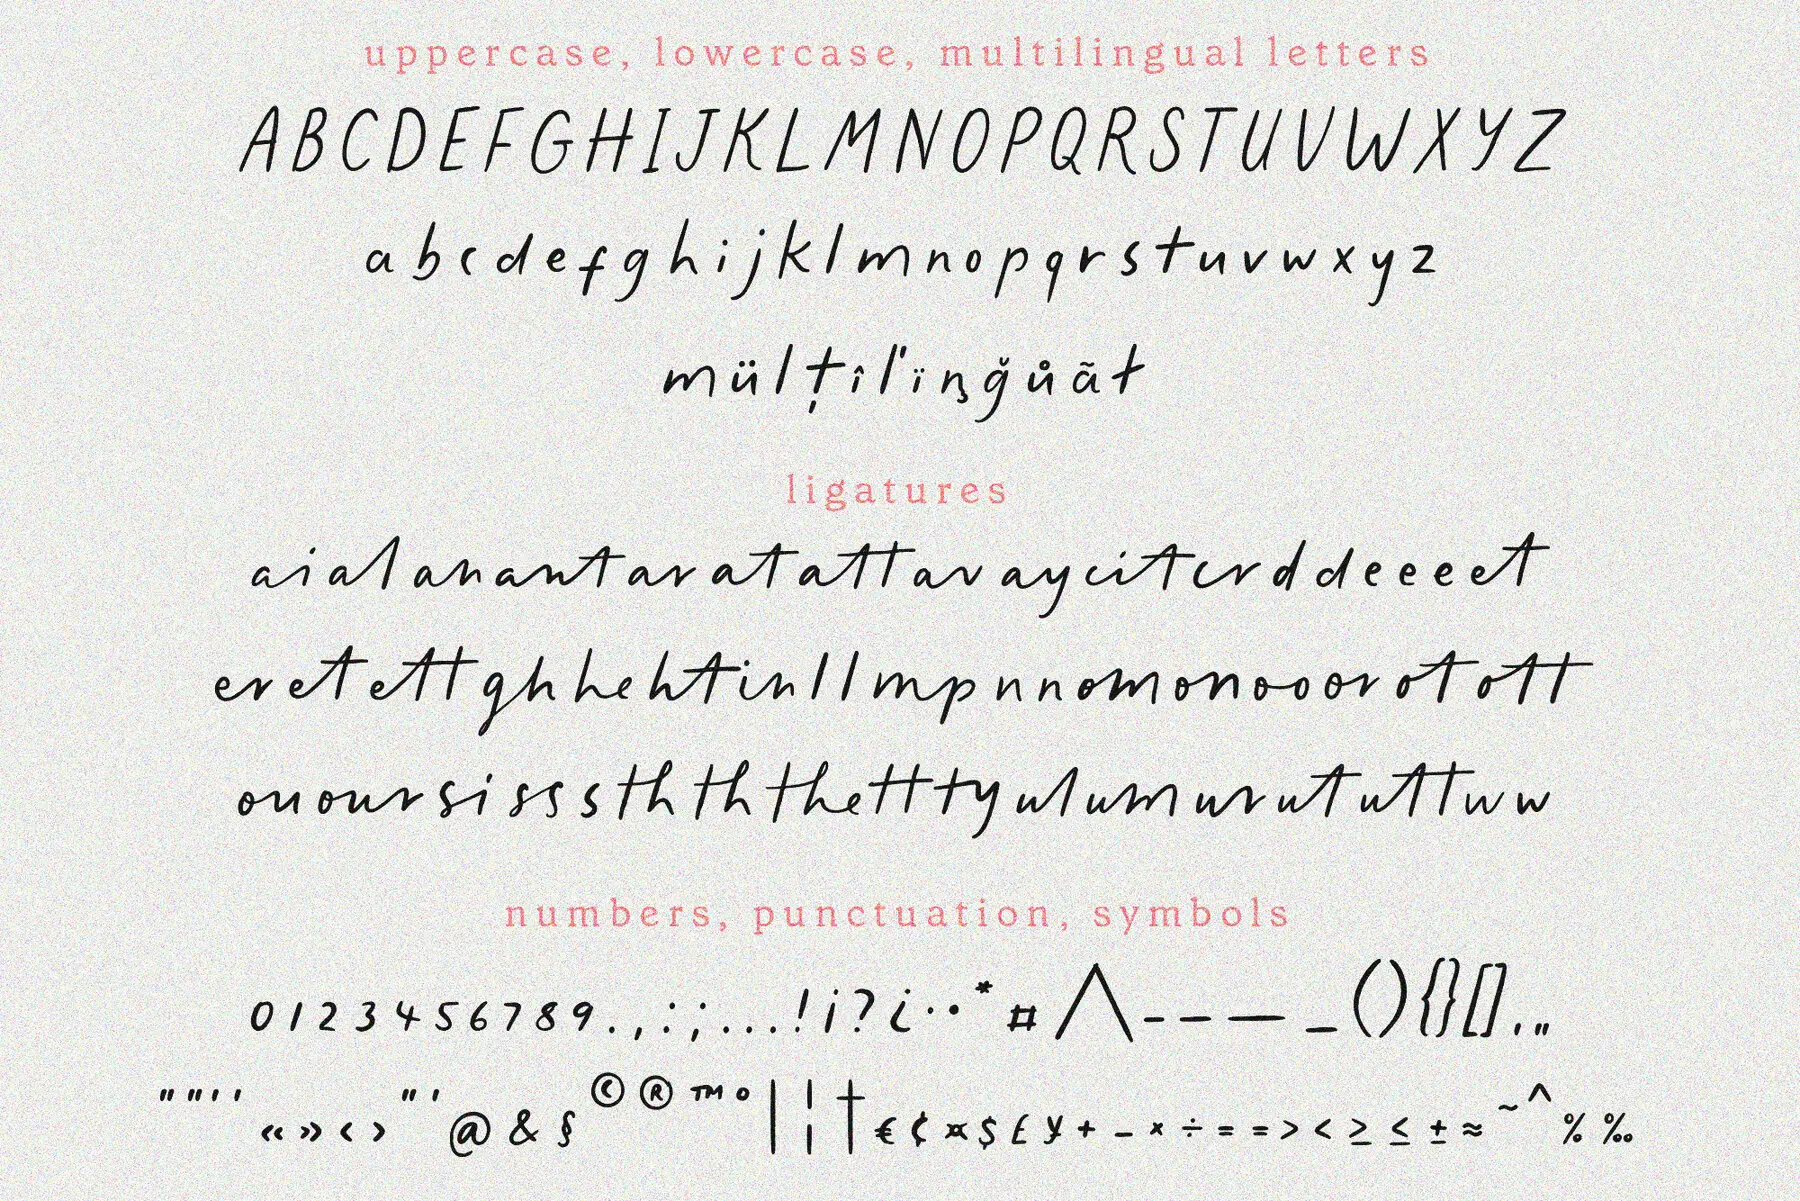 uppercase, lowercase, multilingual letters
A B C D E F G H I J K L M N O P Q R S T U V W X Y Z
a b c d e f g h i j k l m n o p q r s t u v w x y z
m ü l ț î l' ï ņ ğ ů ã ŧ
ligatures
ai al an an ant ar at att av ay ci it cr d d e e e et
er et ett gh h he ht in l l m p n n om on oo or ot ott
ou our si s s s th th the tt ty ul um ur ut utt w w
numbers, punctuation, symbols
0 1 2 3 4 5 6 7 8 9 . , : ; … ! ¡ ? ¿ · • * # / \ - – — _ ( ) { } [ ] ‚ „
" " ' ' « » ‹ › " ' @ & § © ® ™ ° | ¦ † € ¢ ¤ $ £ ¥ + − × ÷ = = > < ≥ ≤ ± ≈ ~ ^ % ‰